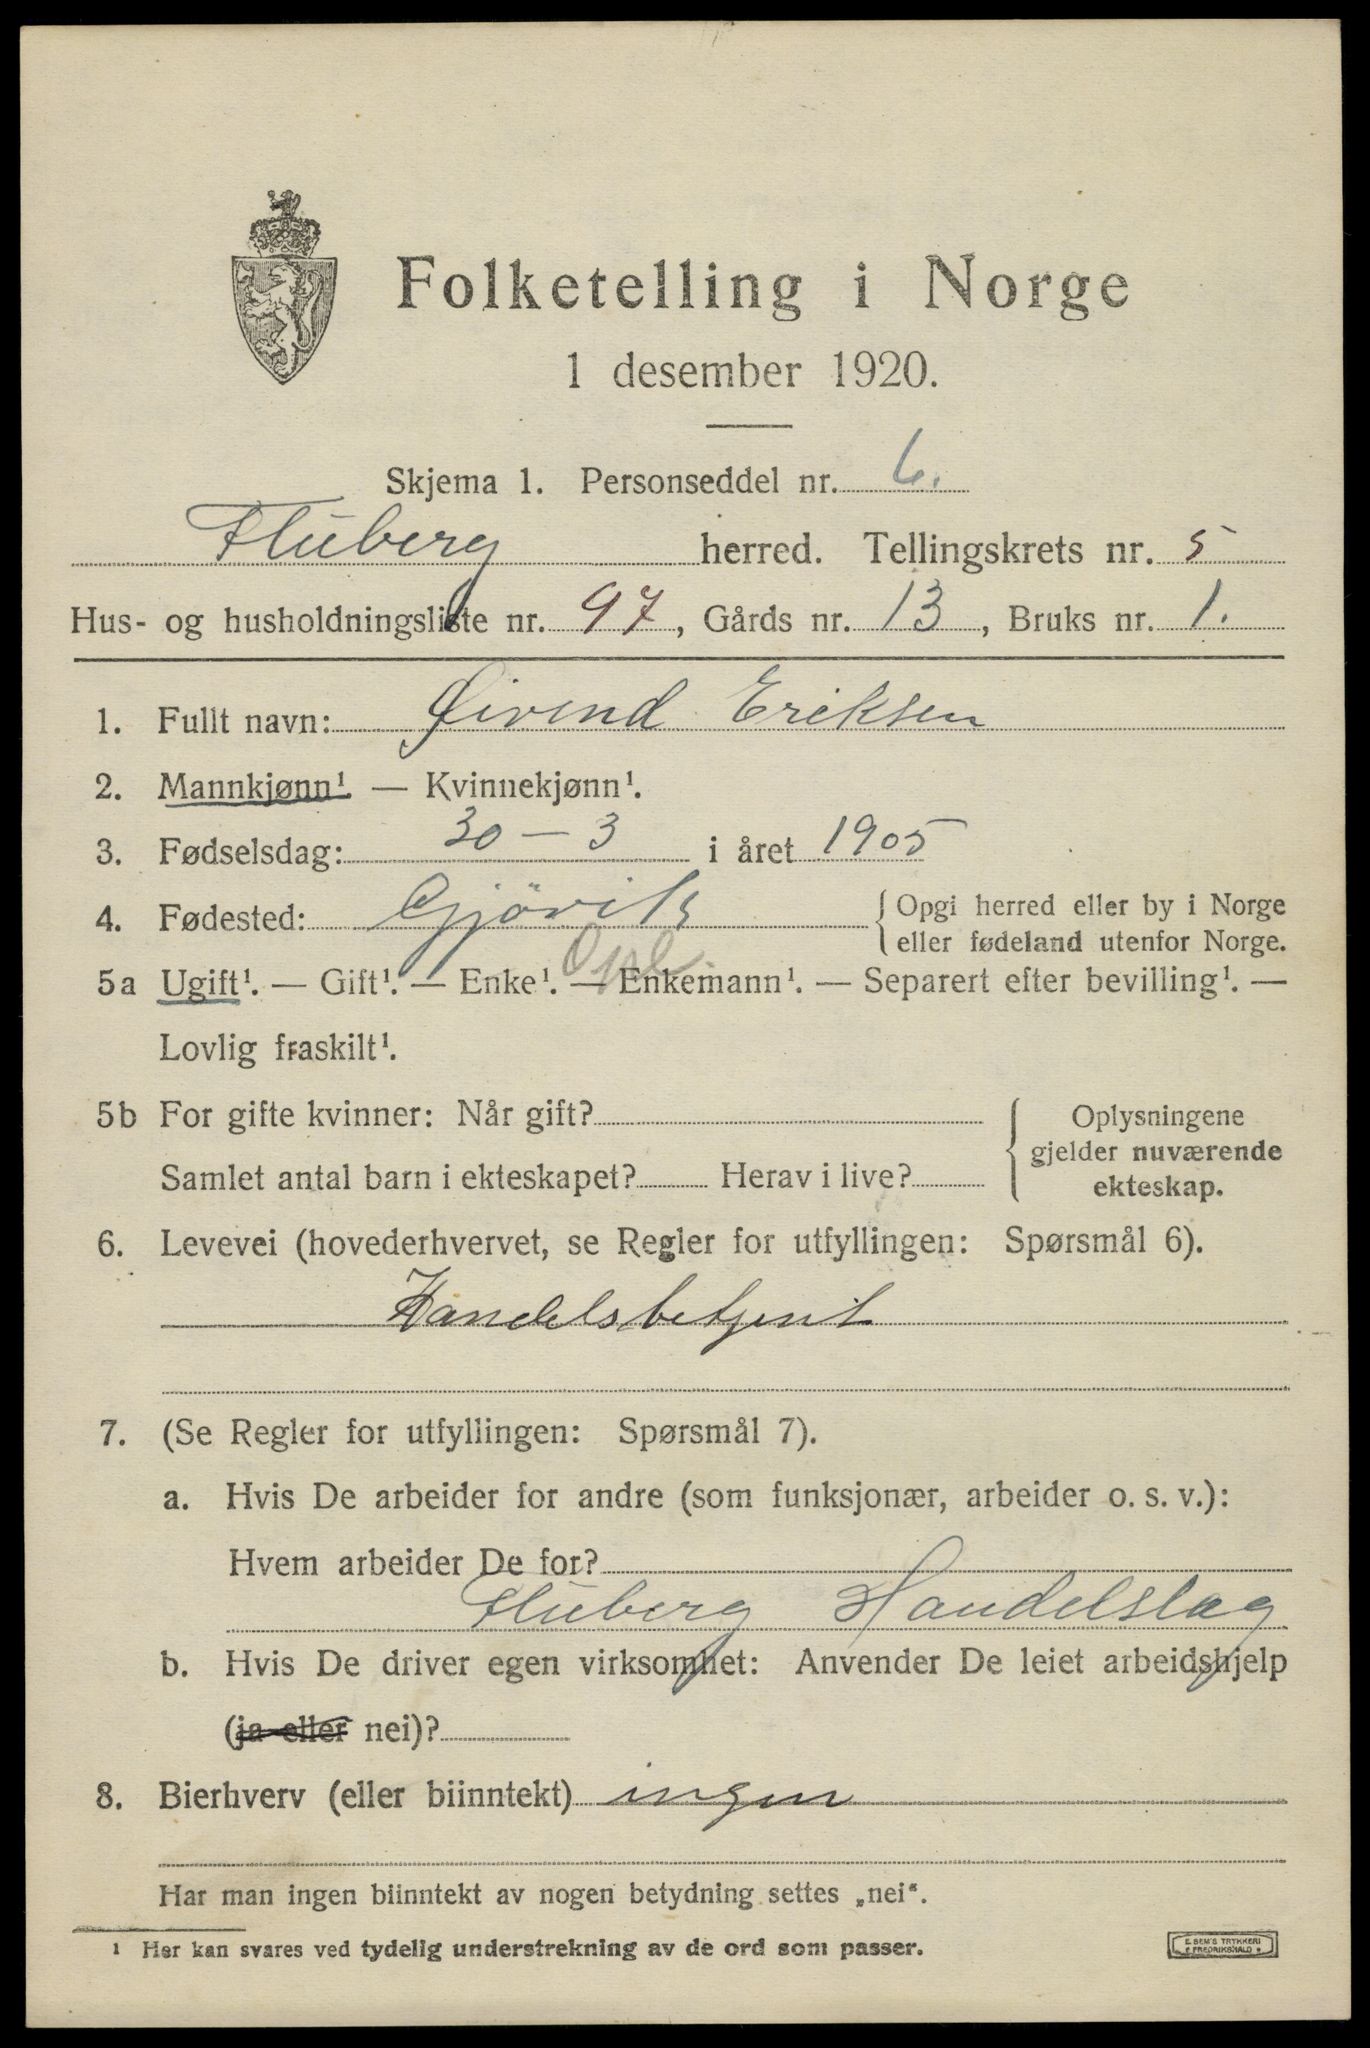 Folketelling i Norge
1 desember 1920.
Skjema 1. Personseddel nr. 6.
Fluberg herred. Tellingskrets nr. 5
Hus- og husholdningsliste nr. 97, Gårds nr. 13, Bruks nr. 1.
1. Fullt navn: Øivend Eriksen
2. Mannkjønn¹. — Kvinnekjønn¹.
3. Fødselsdag: 30 – 3 i året 1905
4. Fødested: Gjövik { Opgi herred eller by i Norge
eller fødeland utenfor Norge.
Opl.
5a Ugift¹. — Gift¹. — Enke¹. — Enkemann¹. — Separert efter bevilling¹. —
Lovlig fraskilt¹.
5b For gifte kvinner: Når gift? { Oplysningene
gjelder nuværende
Samlet antal barn i ekteskapet? Herav i live? ekteskap.
6. Levevei (hovederhvervet, se Regler for utfyllingen: Spørsmål 6).
Handelsbetjent
7. (Se Regler for utfyllingen: Spørsmål 7).
a. Hvis De arbeider for andre (som funksjonær, arbeider o. s. v.):
Hvem arbeider De for?
Fluberg Handelslag
b. Hvis De driver egen virksomhet: Anvender De leiet arbeidshjelp
(ja eller nei)?
8. Bierhverv (eller biinntekt) ingen
Har man ingen biinntekt av nogen betydning settes „nei“.
¹ Her kan svares ved tydelig understrekning av de ord som passer.
E. SEM'S TRYKKERI
FREDRIKSHALD